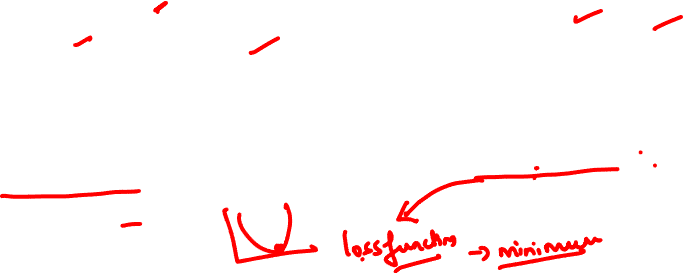 loss function → minimum